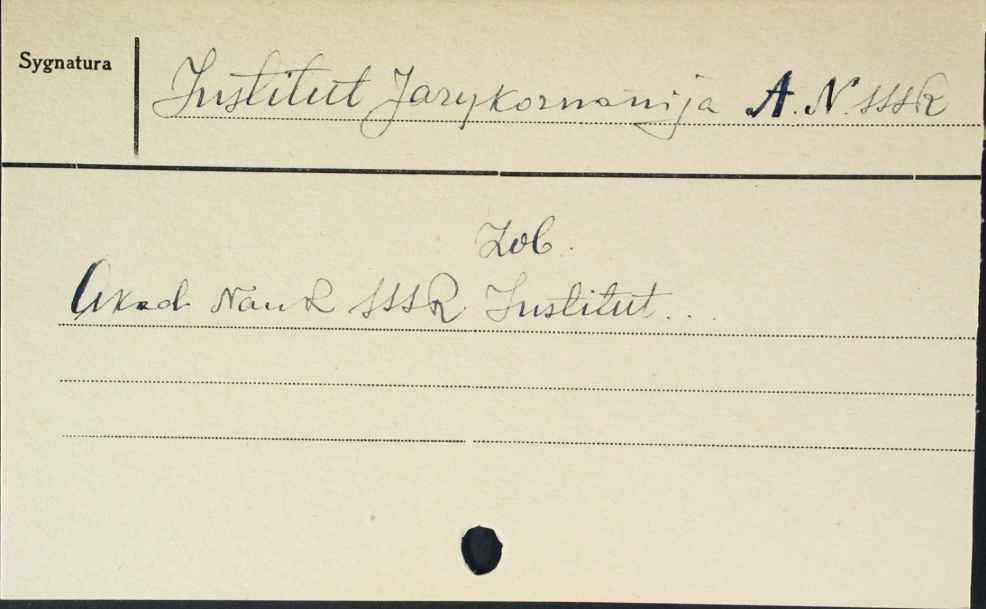 Sygnatura
Institut Jazykoznanija A. N. SSSR
Zob.
Akad Nauk SSSR Institut...